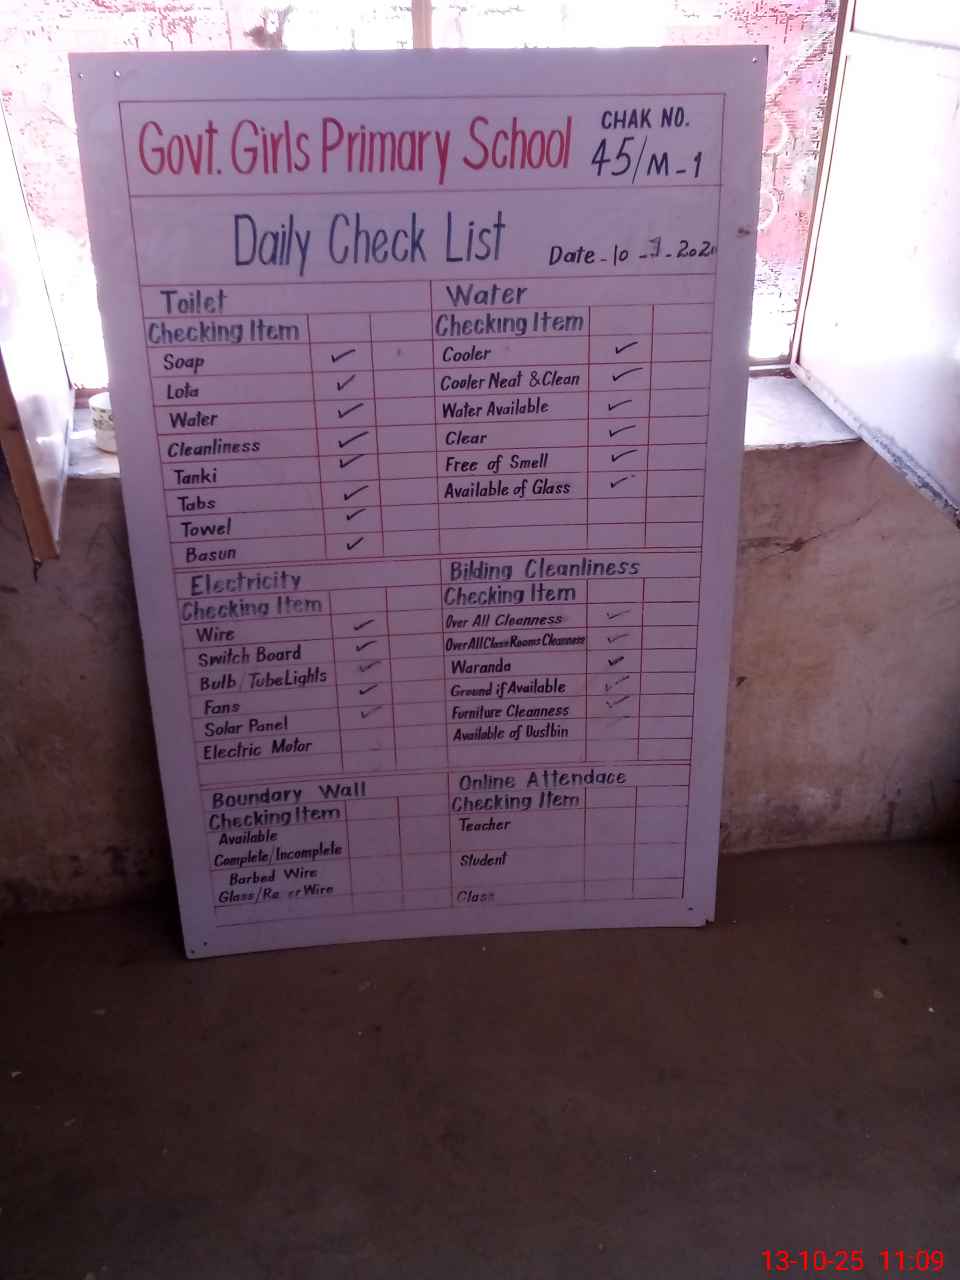 Govt. Girls Primary School
CHAK NO.
45/M-1
Daily Check List
Date-10
Toilet
Checking Item
Soap ✓
Lota ✓
Water ✓
Cleanliness ✓
Tanki ✓
Tabs ✓
Towel ✓
Basun ✓
Water
Checking Item
Cooler ✓
Cooler Neat & Clean ✓
Water Available ✓
Clear ✓
Free of Smell ✓
Available of Glass ✓
Electricity
Checking Item
Wire ✓
Switch Board ✓
Bulb/TubeLights ✓
Fans ✓
Solar Panel ✓
Electric Motor
Bilding Cleanliness
Checking Item
Over All Cleanness ✓
Over All Class Rooms Cleanness ✓
Waranda ✓
Ground if Available ✓
Furniture Cleanness ✓
Available of Dustbin
Boundary Wall
Checking Item
Available
Complete/Incomplete
Barbed Wire
Glass/ Wire
Online Attendace
Checking Item
Teacher
Student
Class
13-10-25 11:09